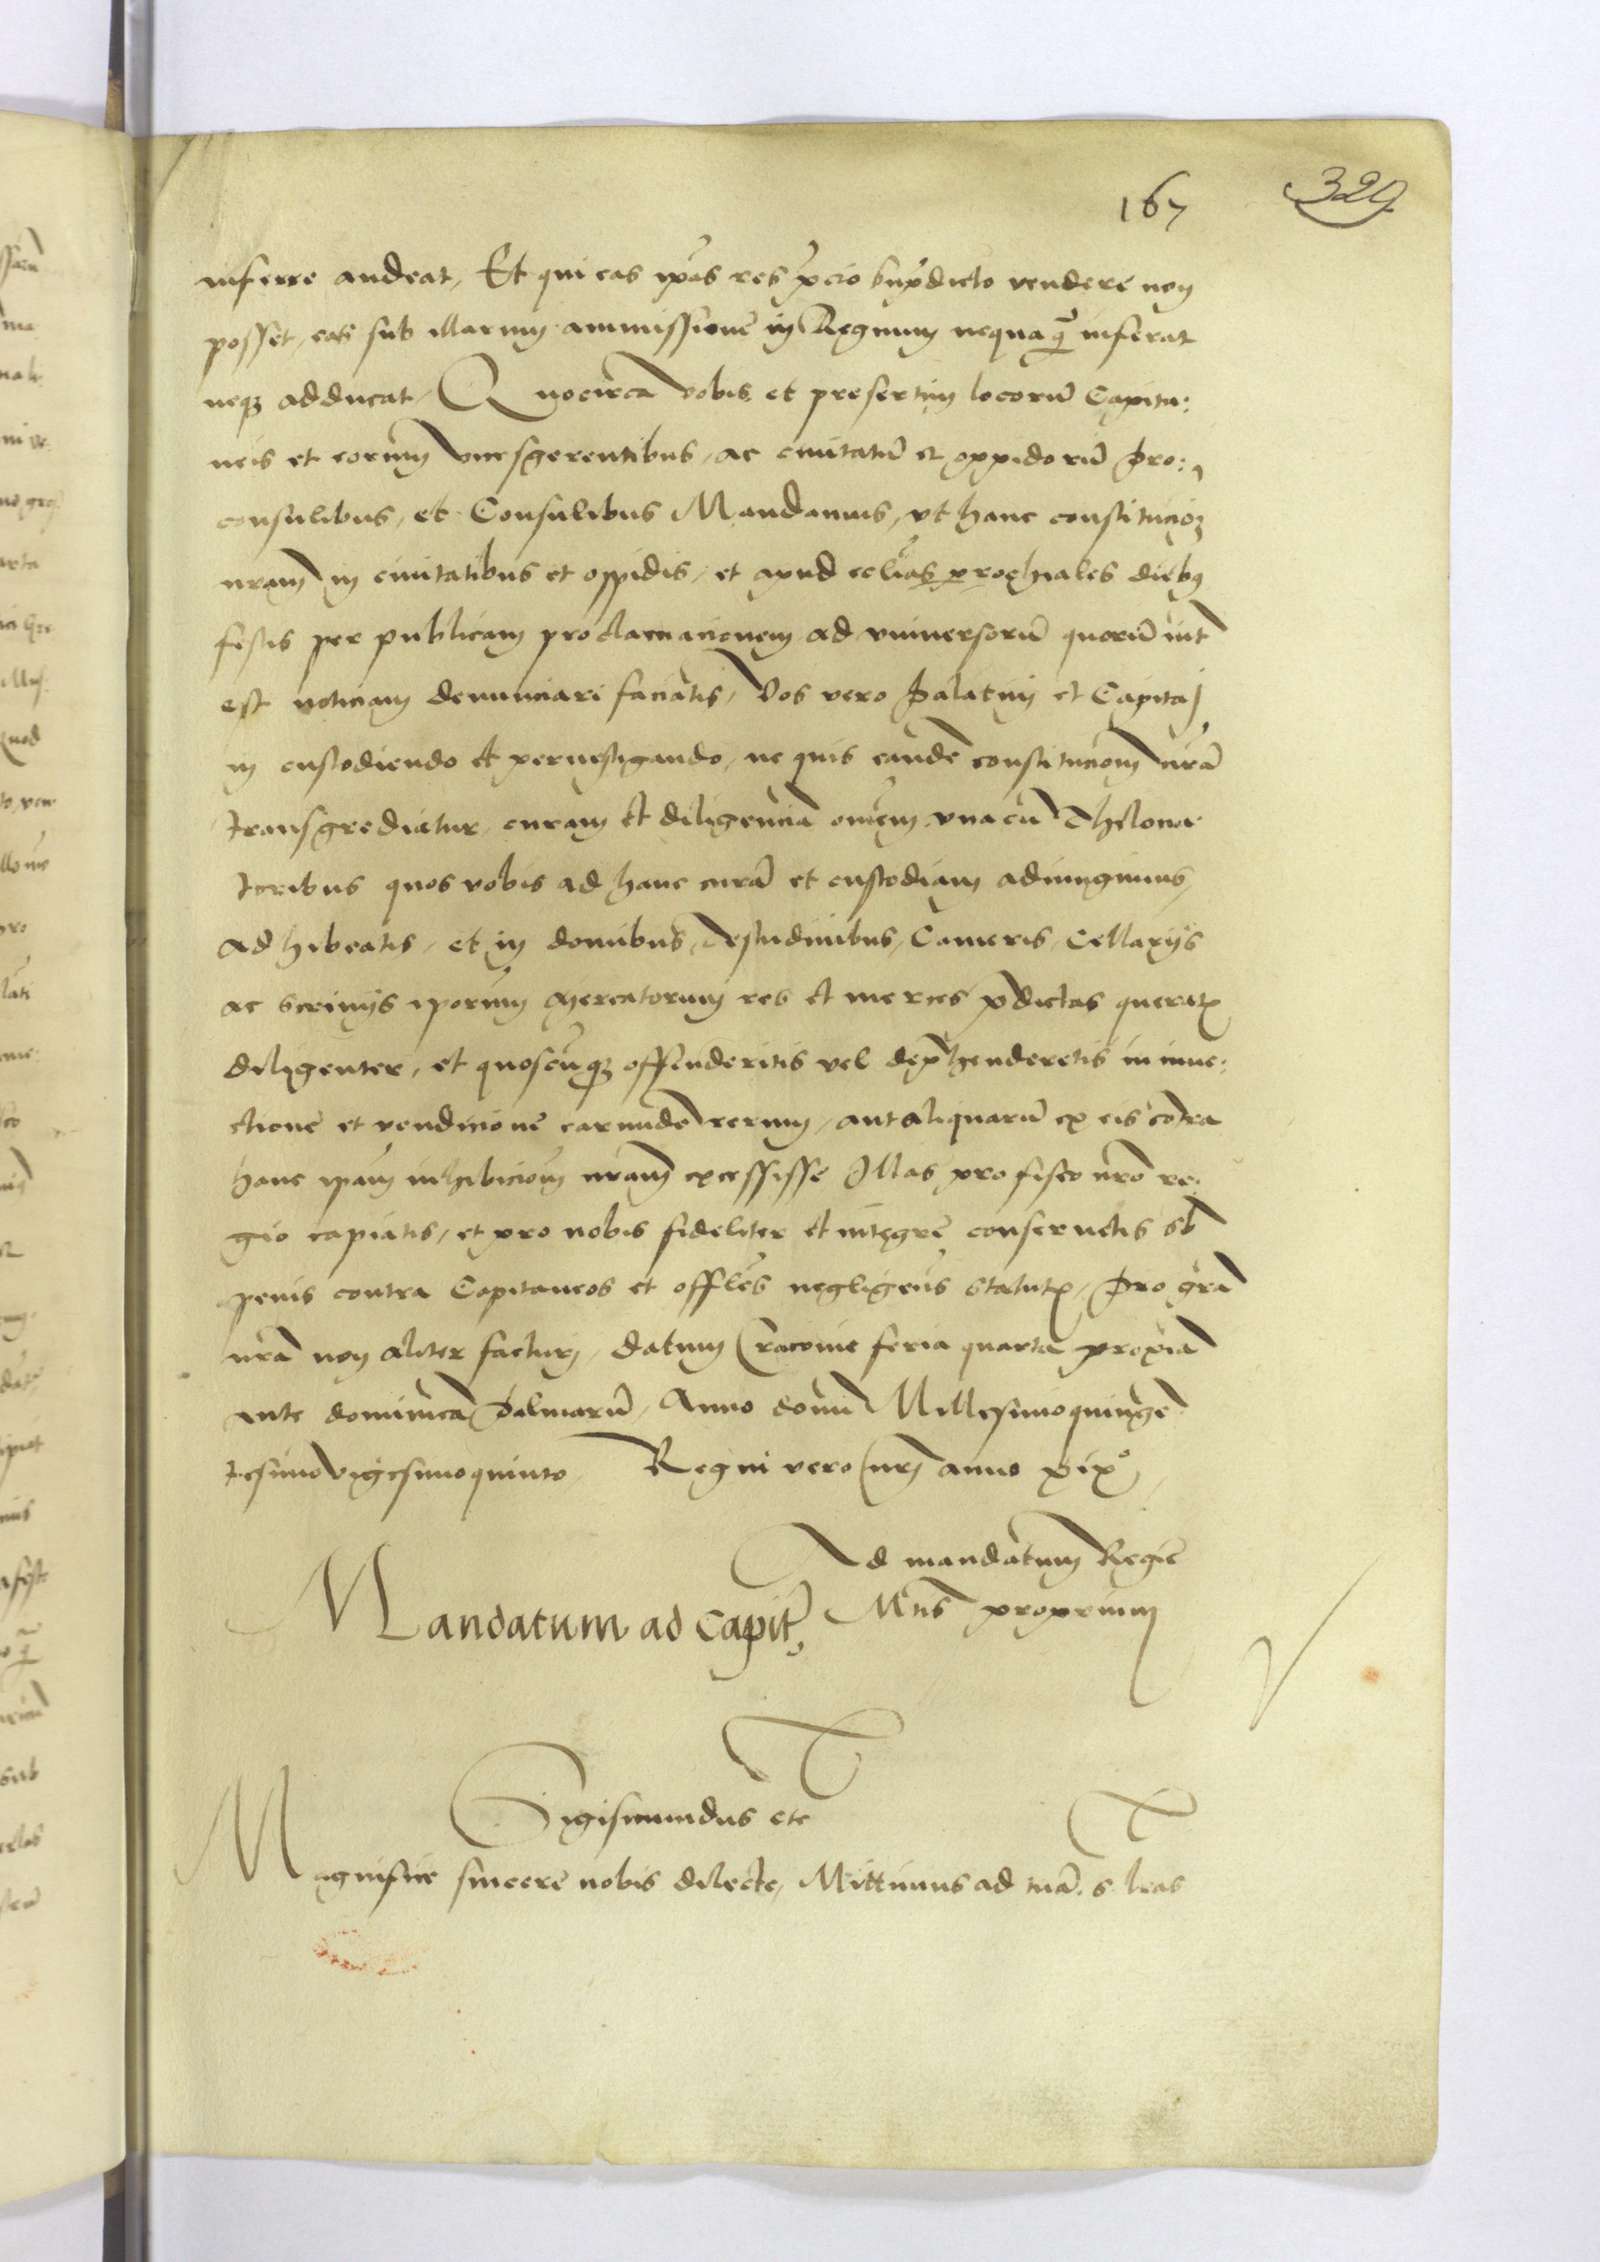 167 329
inferre audeat, Et qui eas ipas res pcio supdicto vendere non
posset, eas sub illarum ammissione in Regnum nequaq̃ inferat
neqz adducat, Quocirca vobis et presertim locorũ Capita:
neis et eorum vicesgerentibus, ac civitatũ et oppidorũ Pro:
consulibus, et Consulibus Mandamus, vt hanc constitucioz
nram in ciuitatibus et oppidis, et apud eccliãs prochiales diebus
festis per publicam proclamacionem ad vniuersorũ quorũ int
est noticiam denunciari faciatis, Vos vero Palatini et Capitaj
in custodiendo et peruestigando, ne quis eandẽ constitucionem nrã
transgrediatur, curam et diligenciã omẽm vnacũ Thelona
toribus quos vobis ad hanc curã et custodiam adiungimus,
adhibeatis, et in domibus, Testudinibus, Cameris, Cellarijs
ac scrinijs iporum mercatorum res et merces pdictas queratis
diligenter, et quoscũqz offenderitis vel dephenderetis in inue:
ctione et vendicione earundẽ rerum, aut aliquarũ ex eis contra
hanc ipam inhibicionẽ nram excessisse Illas pro fisco nro re:
gio capiatis, et pro nobis fideliter et integre conseruetis sb
penis contra Capitaneos et offles negligẽns statutis, Pro grã
nrã non aliter facturi, datum Cracouie feria quarta proxia
ante dominicã Palmarũ, Anno domi Millesimoquinge
tesimovigesimoquinto, Regni vero nrj anno xix°
Ad mandatum Regie
Mtis proprium
Mandatum ad Capit,
Sigismundus etc
Magnifice sincere nobis dilecte, Mittimus ad tuã. s. lras